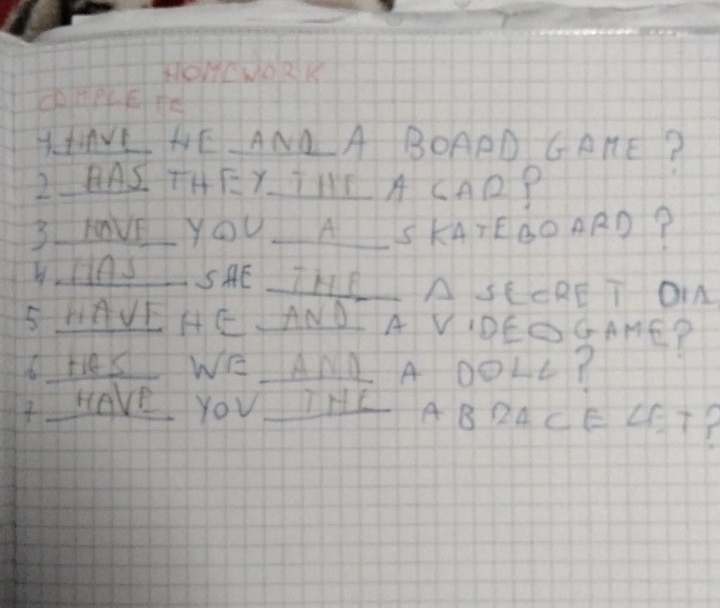 HOMEWORK
COMPLETE
1 HAVE HE AND A BOARD GAME?
2 HAS THEY THE A CAR?
3 HAVE YOU A SKATEBOARD?
4 HAS SHE THE A SECRET DIA
5 HAVE HE AND A VIDEOGAME?
6 HAS WE AND A DOLL?
7 HAVE YOU THE A BRACELET?